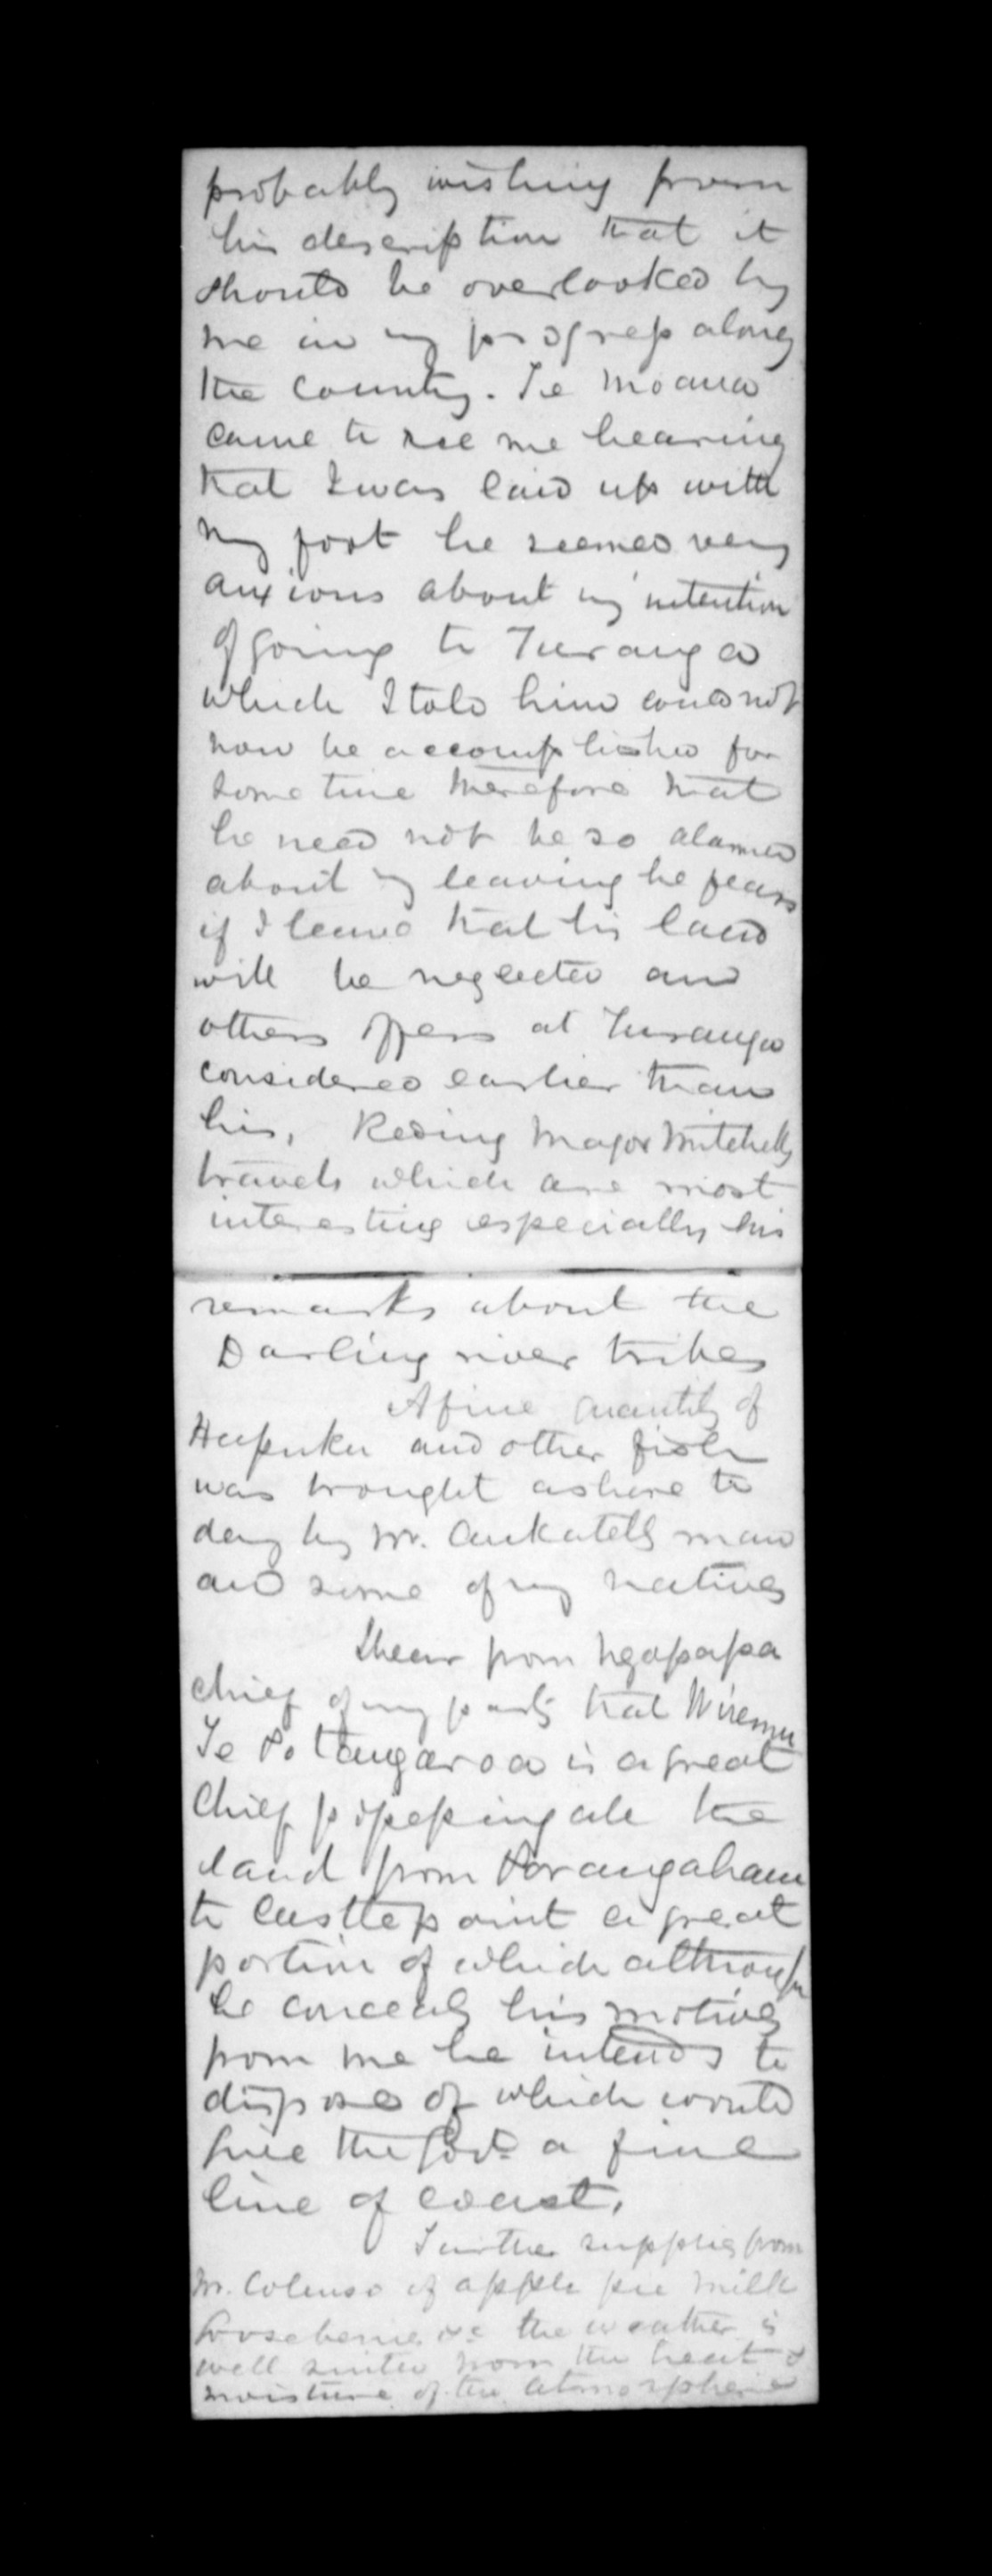 probably wishing from
his description that it
should be overlooked by
me in my progress along
the country. Te Moana
came to see me hearing
that I was laid up with
my foot he seemed very
anxious about my intention
of going to Turanga
which I told him could not
now be accomplished for
some time therefore that
he need not be so alarmed
about my leaving he fears
if I leave that his land
will be neglected and
others offers at Turanga
considered earlier than
his, Reding Major Mitchells
travels which are most
interesting especially his
remarks about the
Darling river tribes
A fine quantity of
Hapuku and other fish
was brought ashore to
day by Mr. man
and some of my natives
I hear from Ngapapa
chief of my party that Wiremu
Te Potangaroa is a great
Chief possessing all the
land from Porangahau
to Castlepoint a great
portion of which although
he conceals his motives
from me he intends to
dispose of which would
give the Govt a fine
line of coast.
Further supplies from
Mr. Colenso of apple pie milk
Gooseberries &c the weather is
well suited from the heat &
moisture of the atmosphere